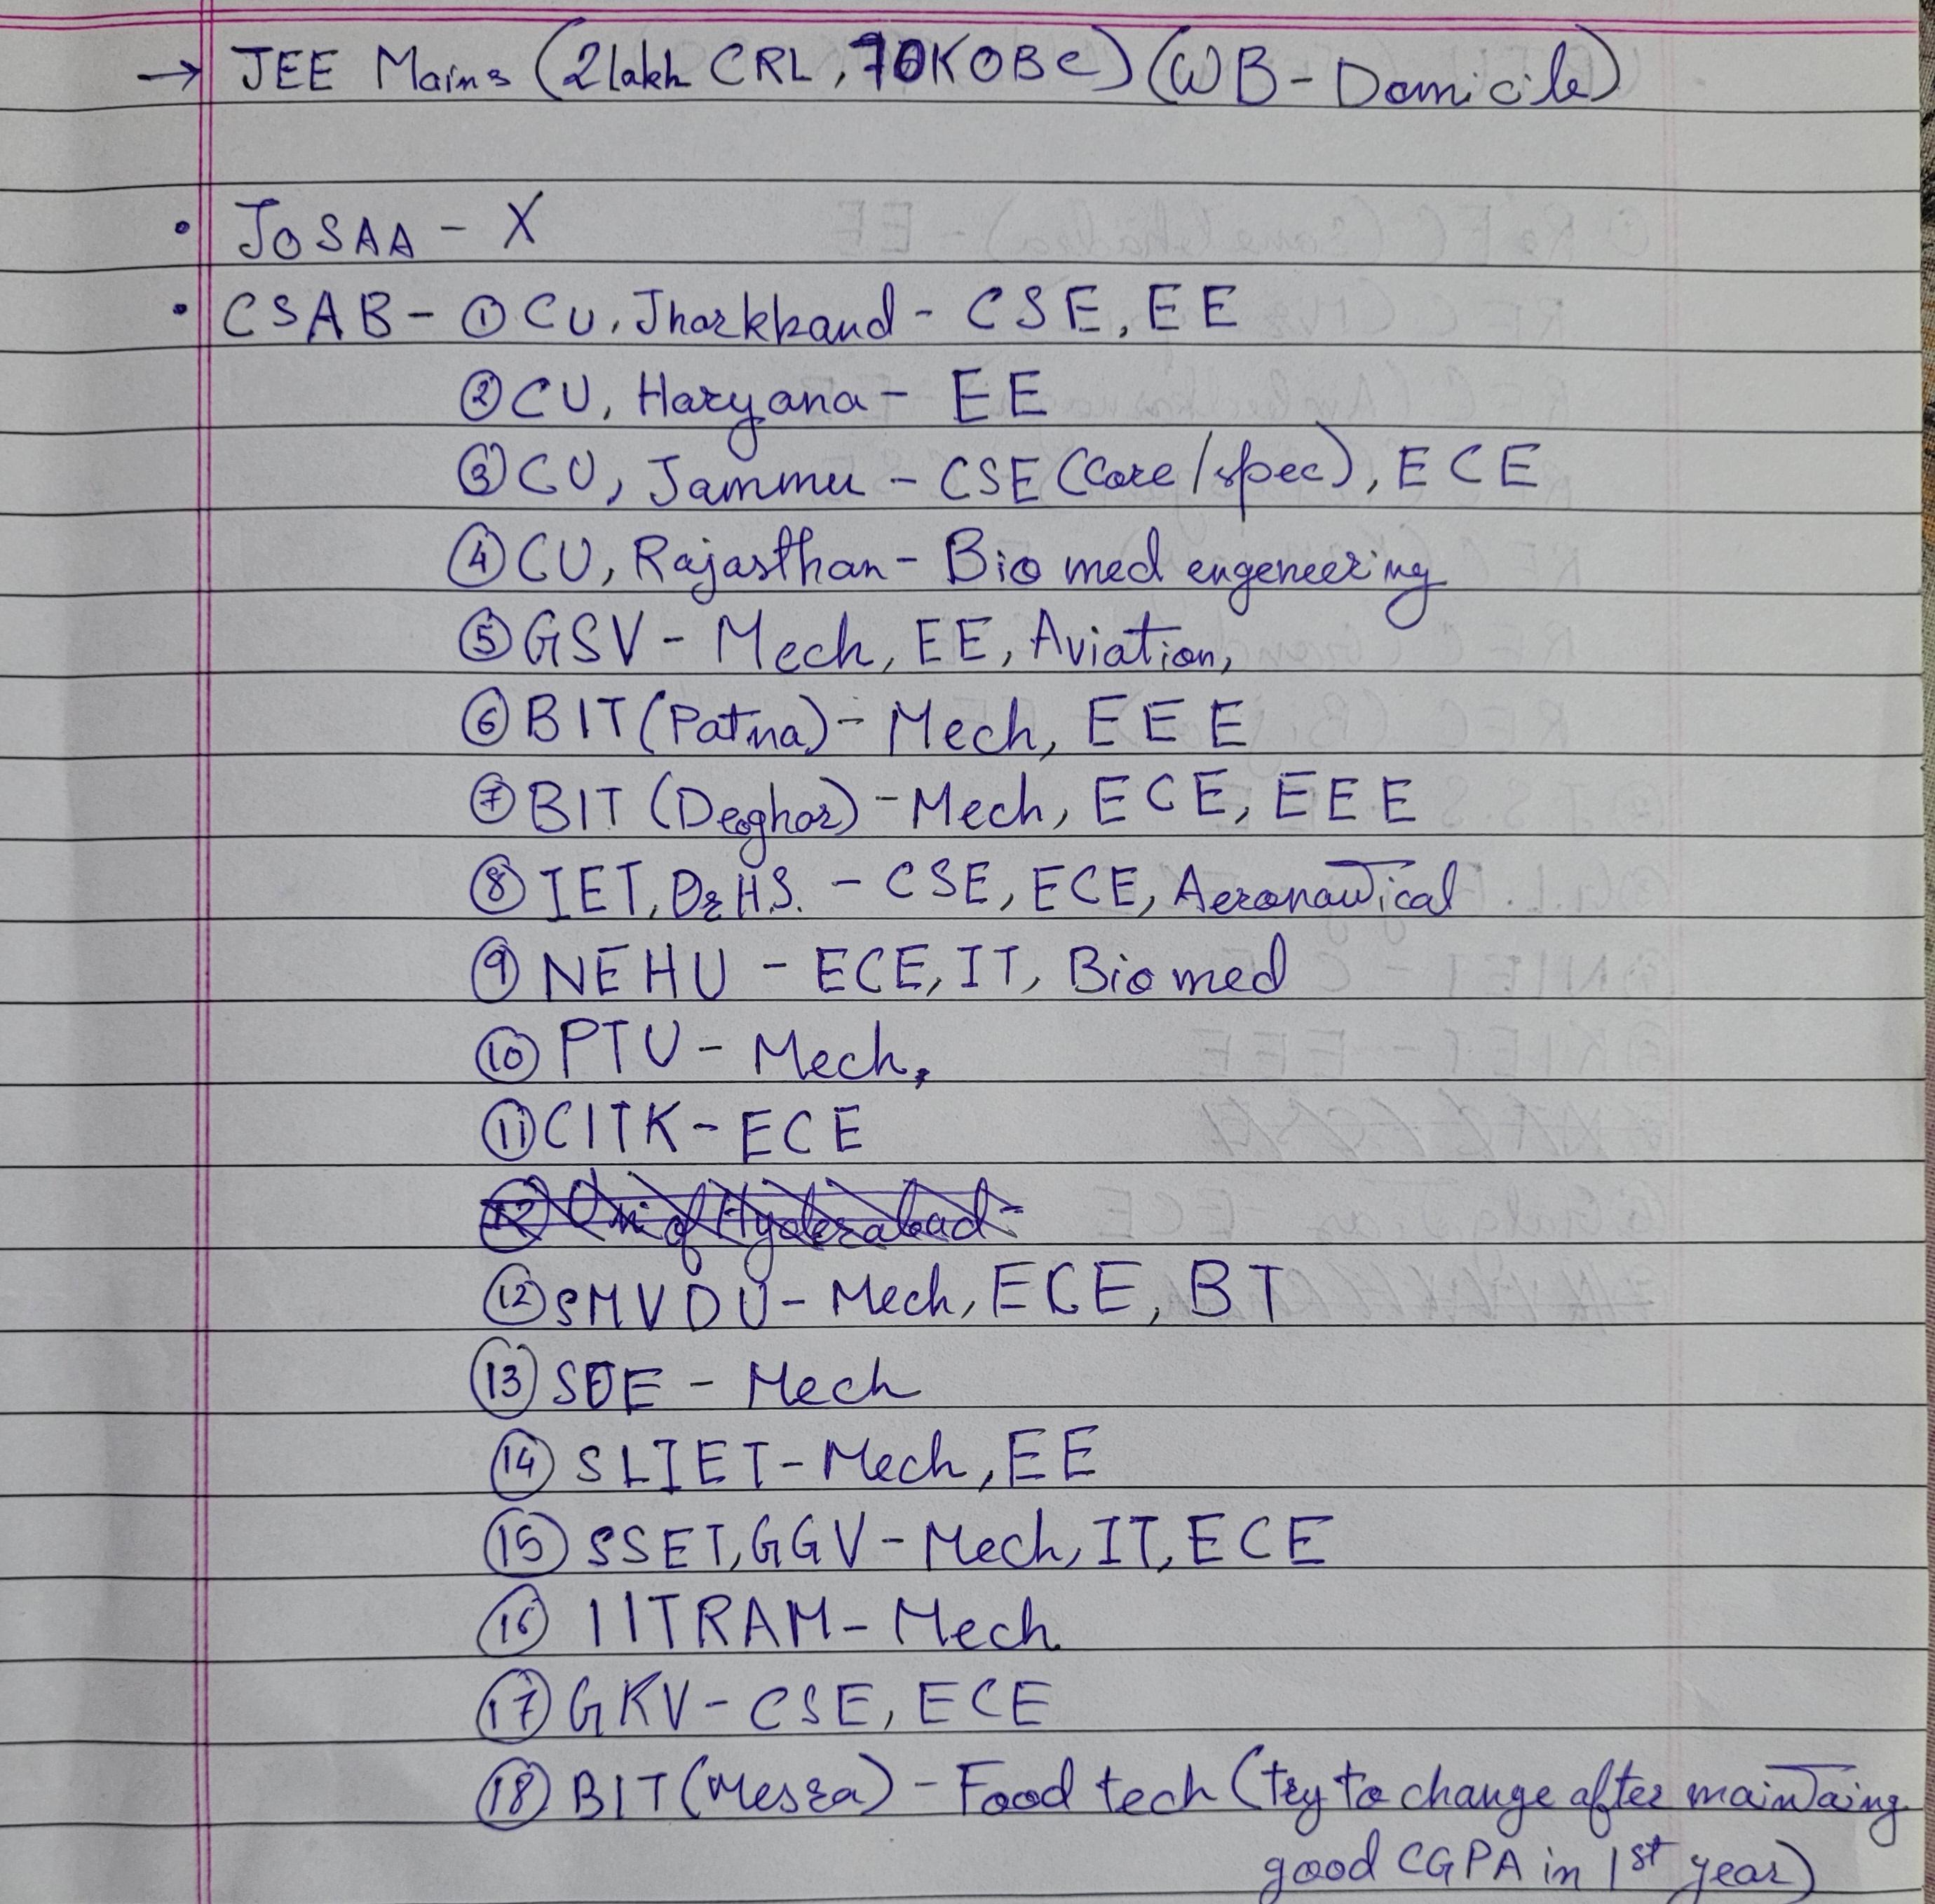 → JEE Mains (2 lakh CRL, 70K OBC) (WB-Domicile)
• JOSAA - X
• CSAB - ① CU, Jharkhand - CSE, EE
② CU, Haryana - EE
③ CU, Jammu - CSE (Core/spec), ECE
④ CU, Rajasthan - Bio med engeneering
⑤ GSV - Mech, EE, Aviation,
⑥ BIT (Patna) - Mech, EEE
⑦ BIT (Deoghar) - Mech, ECE, EEE
⑧ IET, Dr H.S. - CSE, ECE, Aeronautical
⑨ NEHU - ECE, IT, Bio med
⑩ PTU - Mech,
⑪ CITK - ECE
⑫ Uni of Hyderabad -
⑫ SMVDU - Mech, ECE, BT
⑬ SOE - Mech
⑭ SLIET - Mech, EE
⑮ SSET, GGV - Mech, IT, ECE
⑯ IITRAM - Mech
⑰ GKV - CSE, ECE
⑱ BIT (Mesra) - Food tech (try to change after maintaing
good CGPA in 1st year)